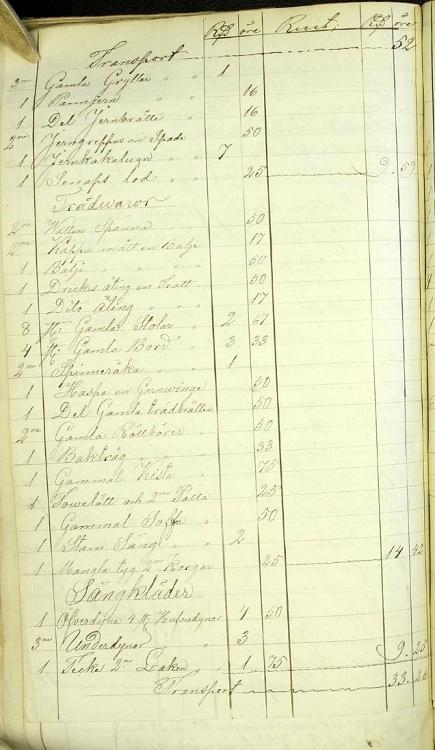 Rdr öre Runt. Rdr öre
Transport 52
3ne Gamla Gryttor " " 1
1 Pannjern " " 16
1 Del Jernbråtte " 16
2ne Jerngreppar en Spade 50
1 Jernkakelugn " " 7
1 Senaps lod " " 25 9. 59
Trädwaror
2ne Watten Spanna 50
2ne Kappa mått en Balje 17
1 Balje " " " 50
1 Drickes åting en Tratt 50
1 Dito åting " " 17
8 st: Gamla Stolar " 2 67
4 st: Gamla Bord " 3 33
2ne Spinneråka " " 1
1 Haspa en Garnwinge 50
1 Del Gamla trädbråtten 50
2ne Gamla 50
1 Baktråg " " " 33
1 Gammal Kista " 75
1 och 2ne 25
1 Gammal Soffa " 50
1 Stam Säng " " 2
1 Mangla tyg 2ne Korgar 25 14. 42
Sängkläder
1 Öfverdyna 4 st Hufvudynor 4 50
3ne Underdynor " 3
1 Täcke 2ne Lakan " 1 75 9. 25
Transport 33.